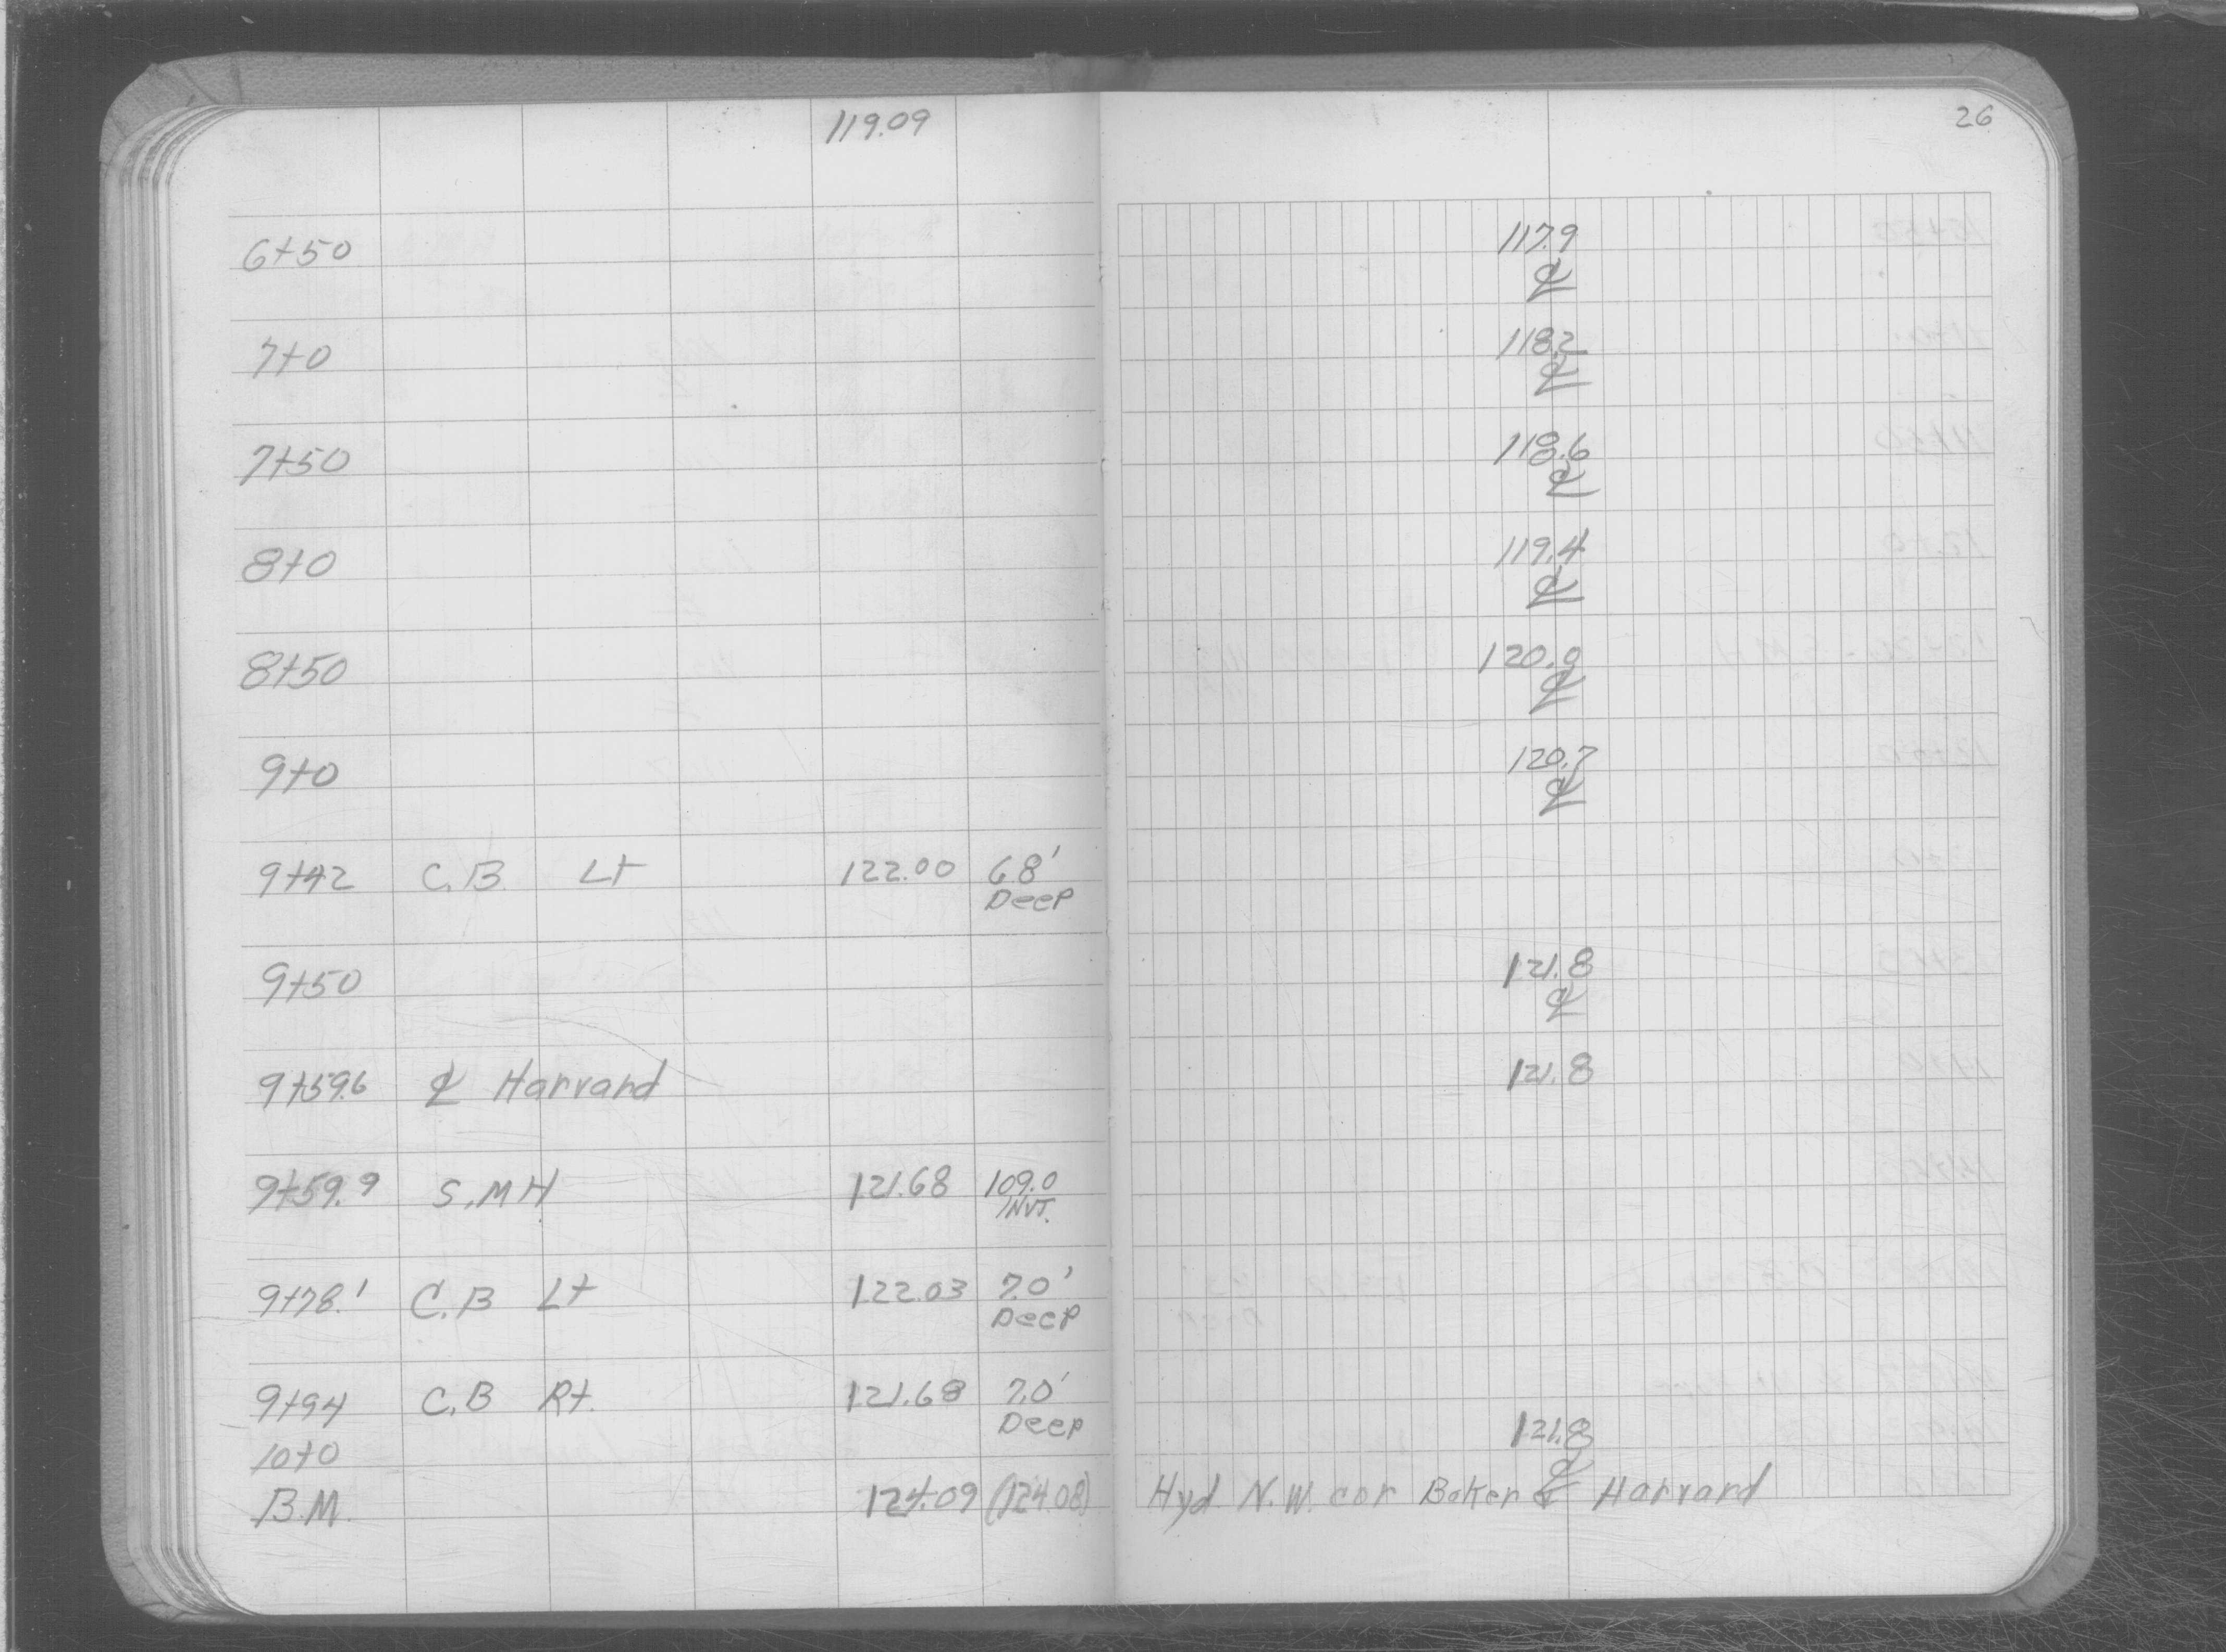 119.09 26
6+50 117.9
℄
7+0 118.2
℄
7+50 118.6
℄
8+0 119.4
℄
8+50
℄
9+0 120.7
℄
9+42 C.B. Lt 122.00 6.8'
Deep
9+50 121.8
℄
9+59.6 ℄ Harvard 121.8
9+59.9 S.MH 121.68 109.0
INVT.
9+78.' C.B Lt 122.03 7.0'
Deep
9+94 C.B Rt. 121.68 7.0'
Deep
10+0 121.8
℄
B.M. 124.09 (124.08) Hyd N.W. cor Baker & Harvard